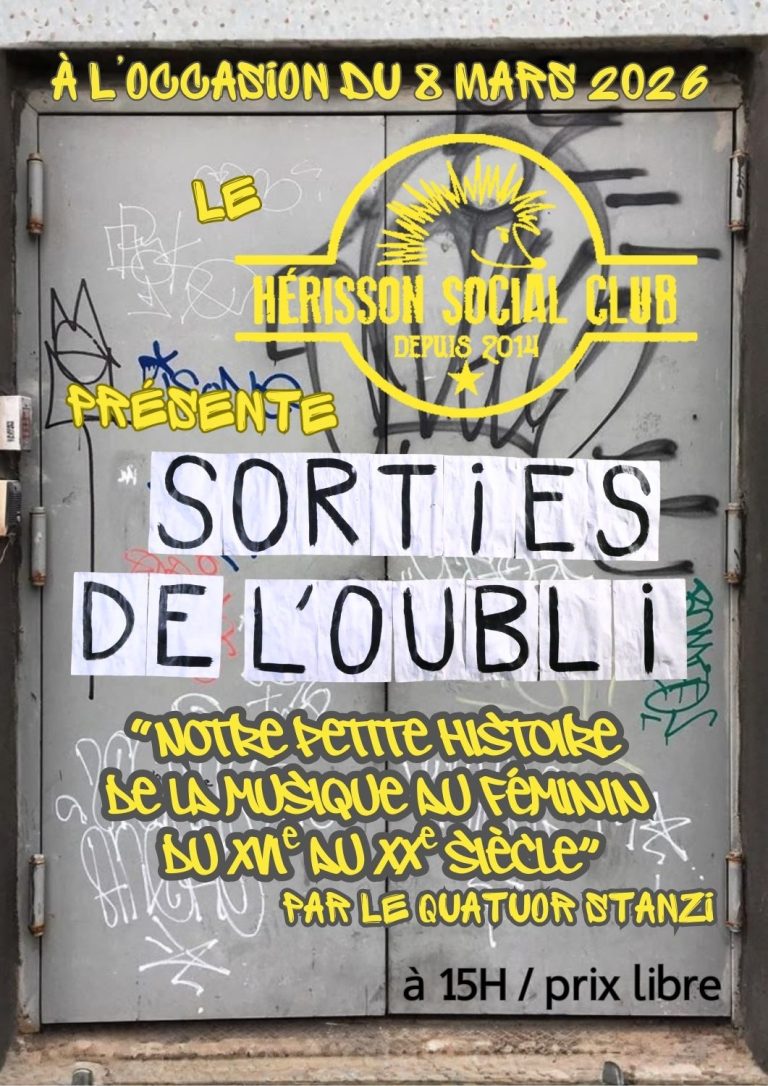 À L'OCCASION DU 8 MARS 2026
LE
HÉRISSON SOCIAL CLUB
DEPUIS 2014
PRÉSENTE
SORTiES
DE L'OUBLi
"NOTRE PETITE HISTOIRE
DE LA MUSIQUE AU FÉMININ
DU XVIe AU XXe SIÈCLE"
PAR LE QUATUOR STANZI
à 15H / prix libre